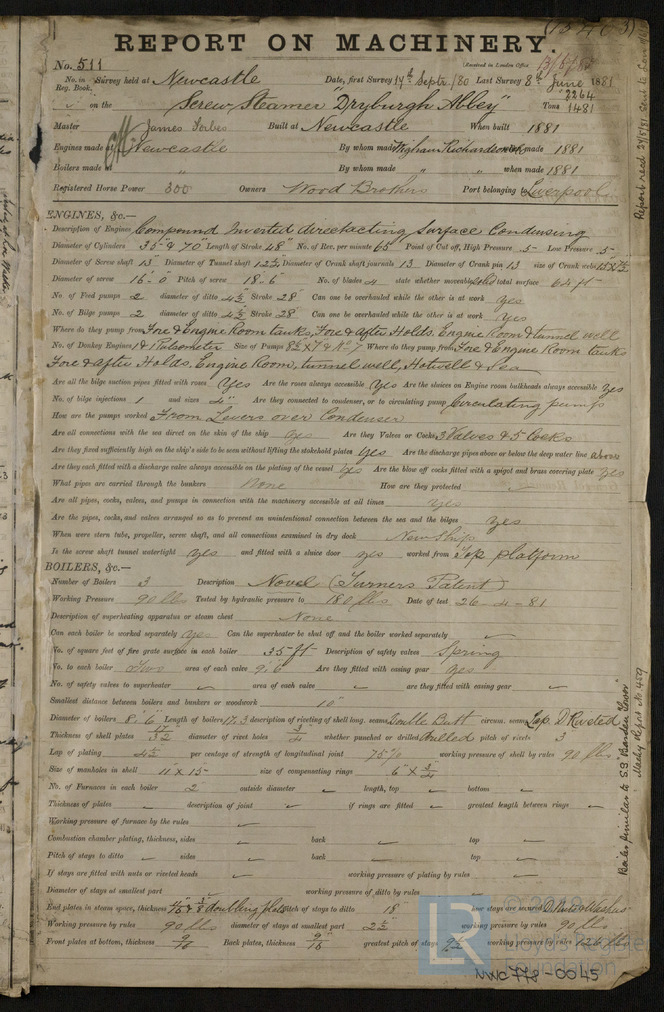 (15403)
REPORT ON MACHINERY.
No. 511 Received in London Office
No. in Survey held at Newcastle Date, first Survey 14th Septr /80 Last Survey 8th June 1881
Reg. Book. 2264
✓ on the Screw Steamer "Dryburgh Abbey" Tons 1481
Master James Forbes Built at Newcastle When built 1881
Engines made at Newcastle By whom made Wigham Richardson & Co when made 1881
Boilers made at " By whom made " when made 1881
Registered Horse Power 300 Owners Wood Brothers Port belonging to Liverpool
ENGINES, &c.—
Description of Engines Compound Inverted direct acting Surface Condensing
Diameter of Cylinders 35" & 70" Length of Stroke 48" No. of Rev. per minute 65 Point of Cut off, High Pressure .5 Low Pressure .5
Diameter of Screw shaft 13" Diameter of Tunnel shaft 12¼ Diameter of Crank shaft journals 13 Diameter of Crank pin 13 size of Crank webs
Diameter of screw 16'-0" Pitch of screw 18-6" No. of blades 4 state whether moveable Solid total surface 64 ft
No. of Feed pumps 2 diameter of ditto 4½ Stroke 28" Can one be overhauled while the other is at work yes
No. of Bilge pumps 2 diameter of ditto 4½ Stroke 28" Can one be overhauled while the other is at work yes
Where do they pump from Fore & Engine Room tanks, Fore & after Holds. Engine Room & tunnel well
No. of Donkey Engines 1 & Pulsometer Size of Pumps Where do they pump from Fore & Engine Room tanks
Fore & after Holds, Engine Room, tunnel well, Hotwell & Sea
Are all the bilge suction pipes fitted with roses Yes Are the roses always accessible Yes Are the sluices on Engine room bulkheads always accessible yes
No. of bilge injections 1 and sizes 4" Are they connected to condenser, or to circulating pump Circulating pump
How are the pumps worked From Levers over Condenser
Are all connections with the sea direct on the skin of the ship yes Are they Valves or Cocks 3 Valves & 5 Cocks
Are they fixed sufficiently high on the ship's side to be seen without lifting the stokehold plates yes Are the discharge pipes above or below the deep water line above
Are they each fitted with a discharge valve always accessible on the plating of the vessel Yes Are the blow off cocks fitted with a spigot and brass covering plate yes
What pipes are carried through the bunkers None How are they protected ✓
Are all pipes, cocks, valves, and pumps in connection with the machinery accessible at all times yes
Are the pipes, cocks, and valves arranged so as to prevent an unintentional connection between the sea and the bilges yes
When were stern tube, propeller, screw shaft, and all connections examined in dry dock New Ship
Is the screw shaft tunnel watertight yes and fitted with a sluice door yes worked from Top platform
BOILERS, &c.—
Number of Boilers 3 Description Novel (Turners Patent)
Working Pressure 90 lbs Tested by hydraulic pressure to 180 lbs Date of test 26-4-81
Description of superheating apparatus or steam chest None
Can each boiler be worked separately yes Can the superheater be shut off and the boiler worked separately ✓
No. of square feet of fire grate surface in each boiler 35 ft Description of safety valves Spring
No. to each boiler Two area of each valve 9.6" Are they fitted with easing gear yes
No. of safety valves to superheater ✓ area of each valve ✓ are they fitted with easing gear ✓
Smallest distance between boilers and bunkers or woodwork 10"
Diameter of boilers 8.6" Length of boilers 17.3 description of riveting of shell long. seams Double Butt circum. seams Lap. D Riveted
Thickness of shell plates 17/32 diameter of rivet holes 3/4 whether punched or drilled Drilled pitch of rivets 3
Lap of plating 4½ per centage of strength of longitudinal joint 75% working pressure of shell by rules 90 lbs
Size of manholes in shell 11" x 15" size of compensating rings 6" x 3/4
No. of Furnaces in each boiler 2 outside diameter ✓ length, top ✓ bottom ✓
Thickness of plates ✓ description of joint ✓ if rings are fitted ✓ greatest length between rings ✓
Working pressure of furnace by the rules ✓
Combustion chamber plating, thickness, sides ✓ back ✓ top ✓
Pitch of stays to ditto ✓ sides ✓ back ✓ top ✓
If stays are fitted with nuts or riveted heads ✓ working pressure of plating by rules ✓
Diameter of stays at smallest part ✓ working pressure of ditto by rules ✓
End plates in steam space, thickness doubling plate pitch of stays to ditto 18 how stays are secured
Working pressure by rules 90 lbs diameter of stays at smallest part 2½" working pressure by rules 90 lbs
Front plates at bottom, thickness 9/16 Back plates, thickness 9/16 greatest pitch of stays working pressure by rules 126 lbs
Boiler similar to S.S "Barden Tower"
Machy Report No 459
© 2019
LR
Lloyd's Register
Foundation
NWC778-0045